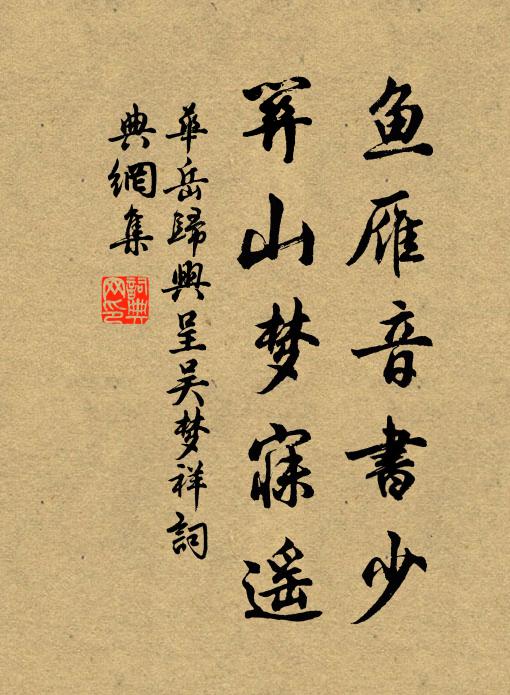 鱼雁音書少
関山梦寐遥
華岳歸興呈吴梦祥詞
典網集
詞典
网印